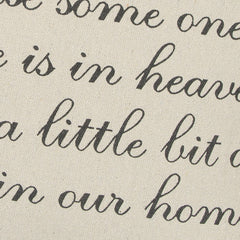 se some one
e is in heave
a little bit
in our hom